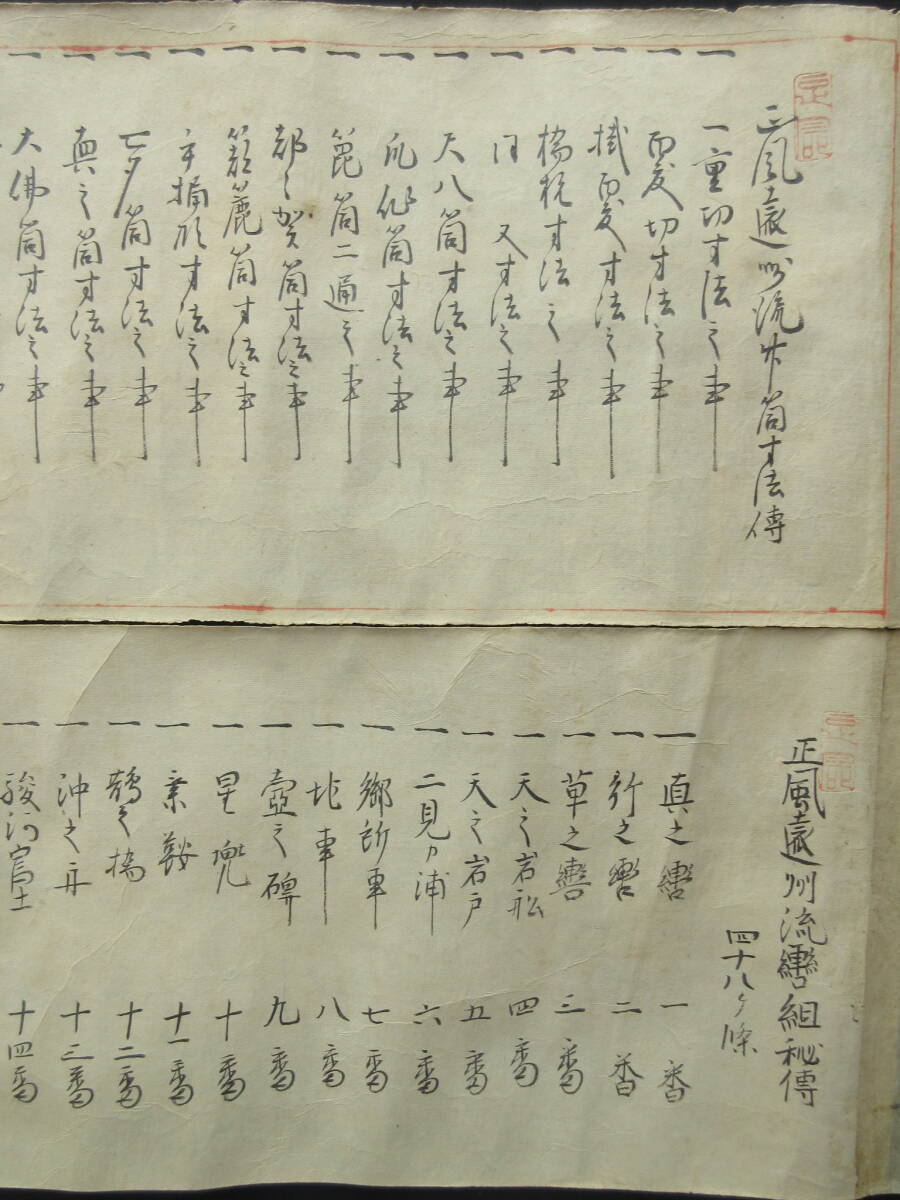 正風遠州流竹筒寸法傳
一 一重切寸法之事
一 両度切寸法之事
一 掛両度寸法之事
一 橋杭寸法之事
一 同又寸法之事
一 尺八筒寸法之事
一 瓜作筒寸法之事
一 箆筒二通之事
一 都之賀筒寸法之事
一 筒寸法之事
一 手桶形寸法之事
一 七夕筒寸法之事
一 真之筒寸法之事
一 大佛筒寸法之事
正風遠州流轡組秘傳
四十八ヶ條
一 真之轡 一番
一 行之轡 二番
一 草之轡 三番
一 天之岩船 四番
一 天之岩戸 五番
一 二見ヶ浦 六番
一 御所車 七番
一 車 八番
一 壺之碑 九番
一 星兜 十番
一 鞍 十一番
一 鵲之橋 十二番
一 沖之舟 十三番
一 駿河富士 十四番